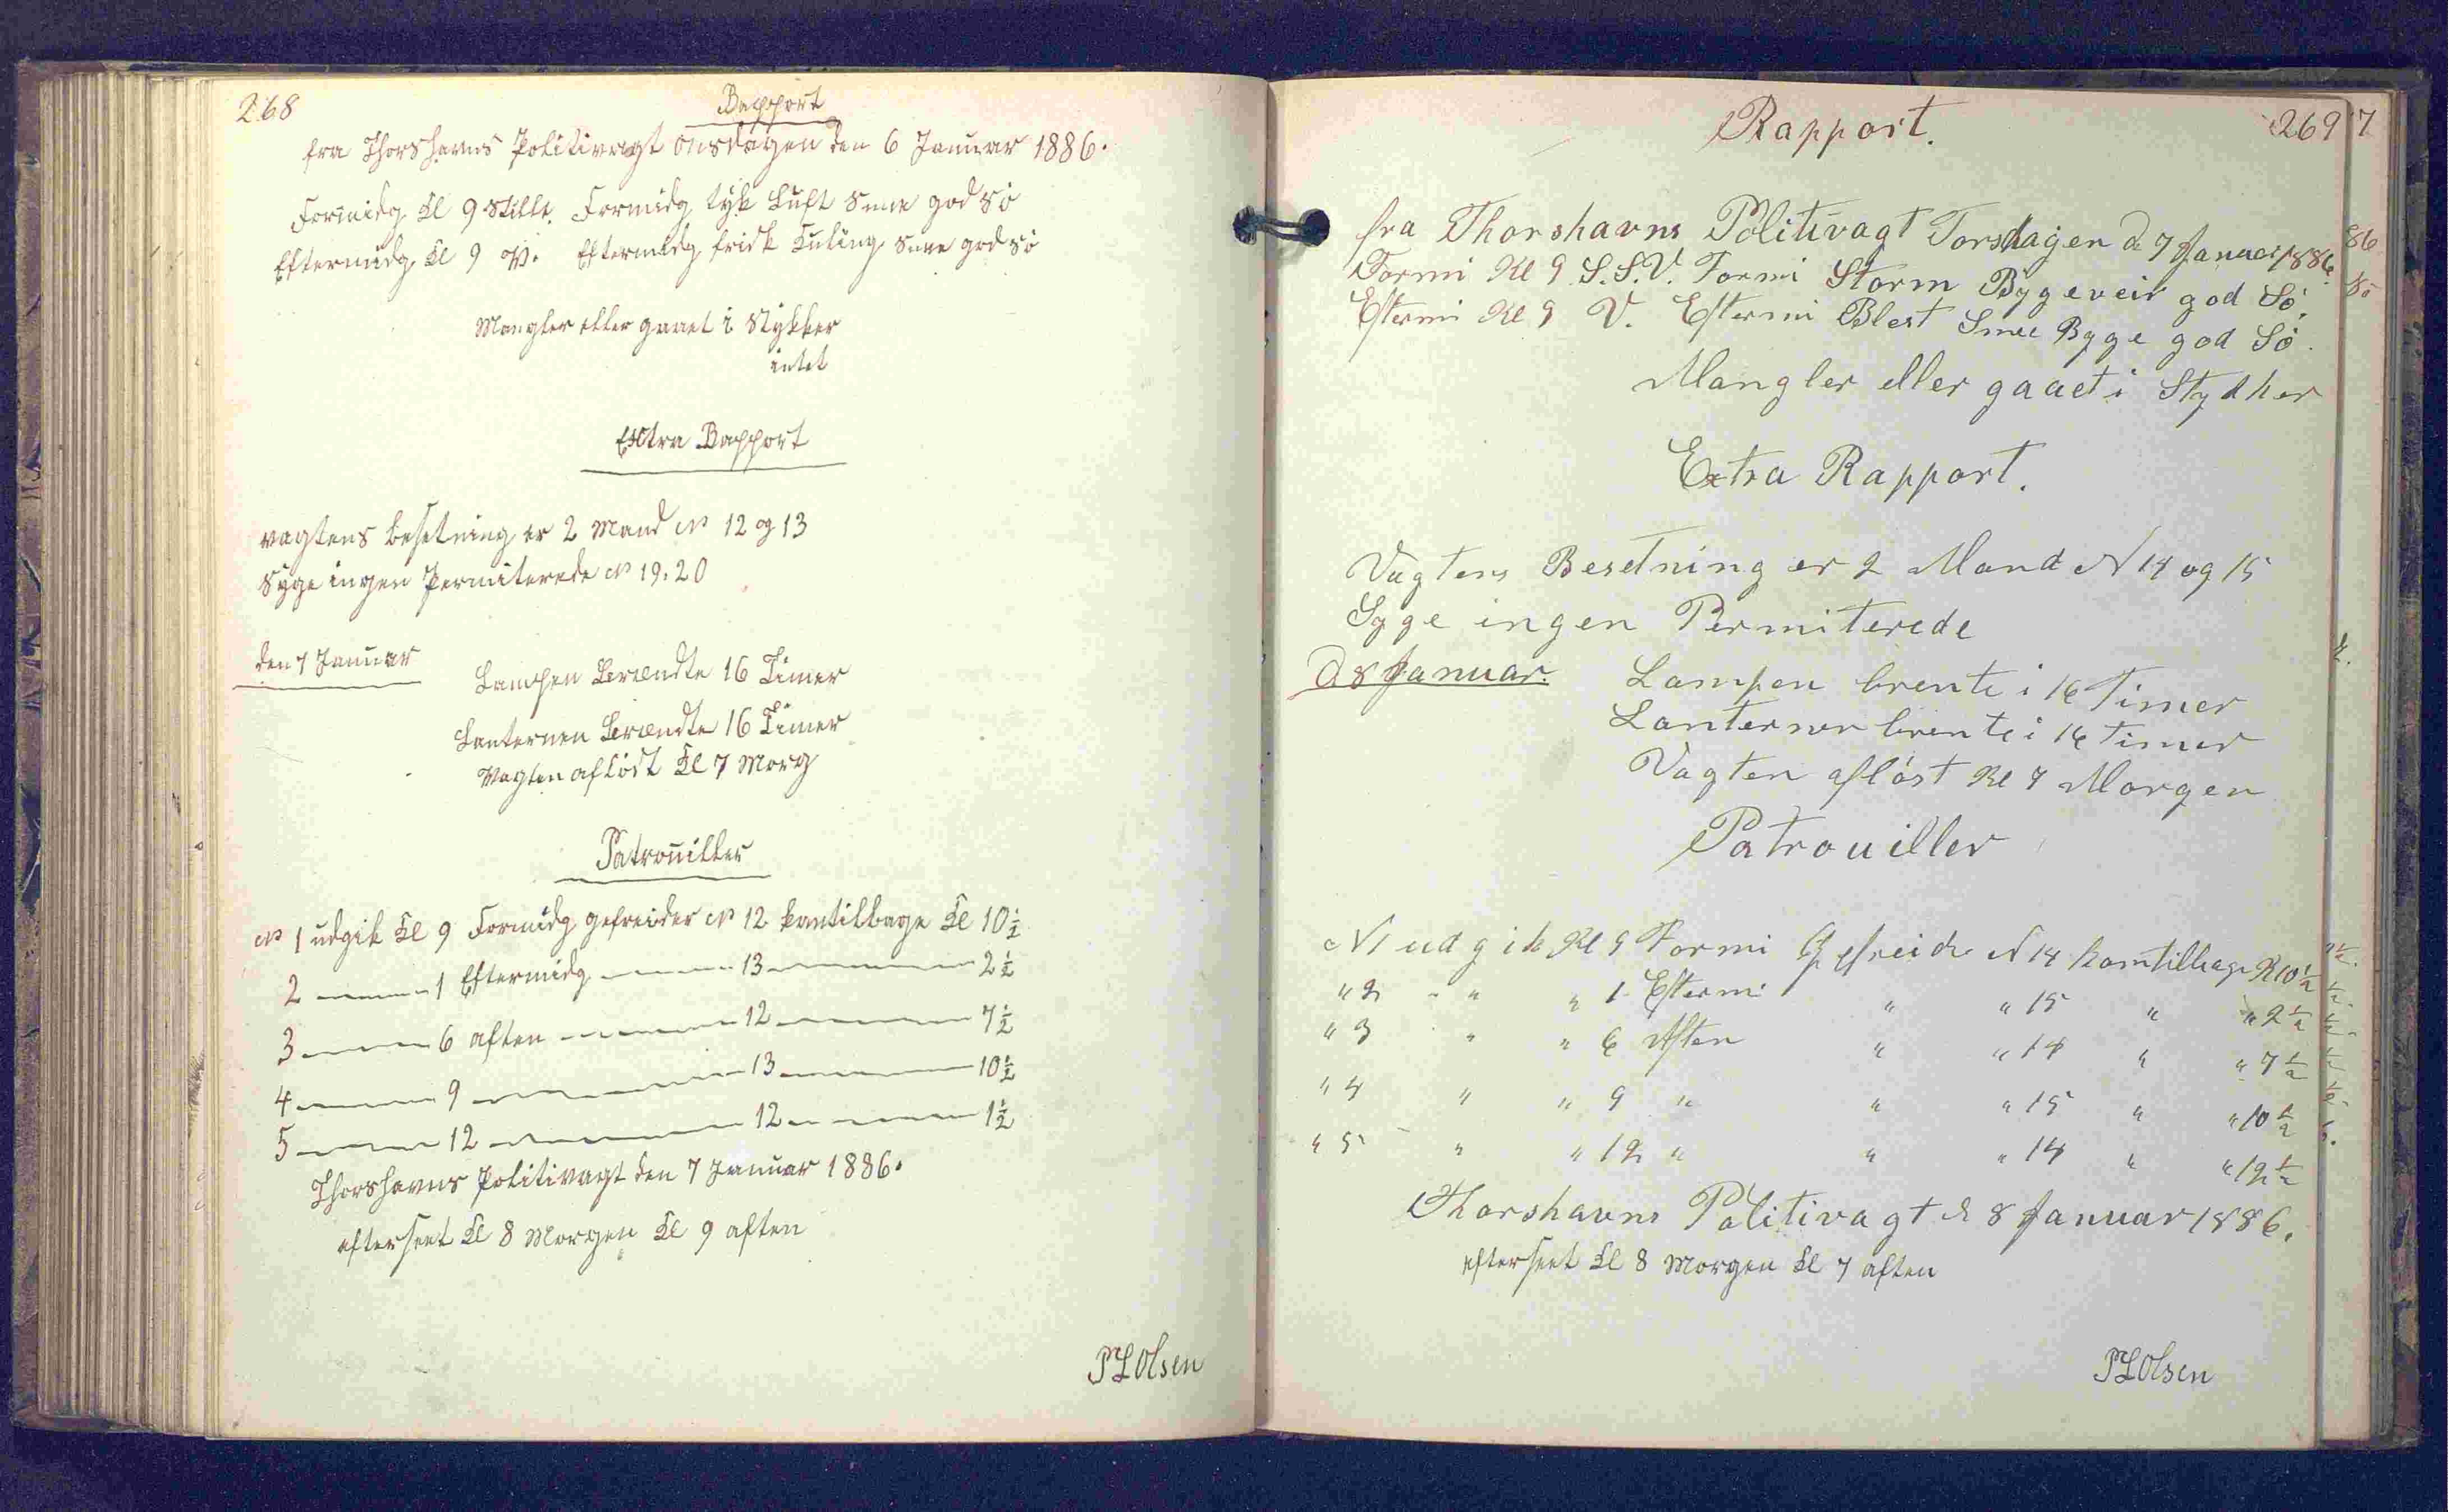 268
Rapport
fra Thorshavns Politivagt Onsdagen den 6 Januar 1886.
Formidg Kl 9 Stille. Formidg tyk Luft Snee god Sö
Eftermidg Kl 9 V. Eftermidg frisk Kuling Snee god Sö
Mangler eller gaaet i Stykker
intet
Extra Rapport
vagtens besetning er 2 Mand № 12 og 13
Syge ingen Permiterede № 19.20
den 7 Januar
Lampen Brændte 16 Timer
Lanternen Brændte 16 Timer
Vagten aflöst Kl 7 Morg
Patrouiller
№ 1 udgik Kl 9 Formidg gefreider № 12 komtilbage Kl 10½
2 — 1 Eftermidg — 13 — 2½
3 — 6 aften — 12 — 7½
4 — 9 — 13 — 10½
5 — 12 — 12 — 1½
Thorshavns Politivagt den 7 Januar 1886.
efterseet Kl 8 Morgen Kl 9 aften
PLOlsen
269
Rapport.
fra Thorshavns Politivagt Torsdagen d 7 Januar 1886.
Formi Kl 9 S.S.V. Formi Storm Bygeveir god Sö.
Eftermi Kl 9 V. Eftermi Blest Snee Byge god Sö.
Mangler eller gaaet i Stykker
Extra Rapport.
Vagtens Besetning er 2 Mand N 14 og 15
Syge ingen Permiterede
D. 8 Januar.
Lampen brente i 16 Timer
Lanternen brente i 16 Timer
Vagten aflöst Kl 7 Morgen
Patrouiller
N 1 udgik Kl 9 Formi Gefreider N 14 komtilbage Kl 10½
" 2 " " 1 Eftermi " " 15 " " 2½
" 3 " " 6 Aften " " 14 " " 7½
" 4 " " 9 " " " 15 " " 10½
" 5 " " 12 " " " 14 " " 12½
Thorshavns Politivagt d 8 Januar 1886.
efterseet Kl 8 Morgen Kl 7 aften
PLOlsen